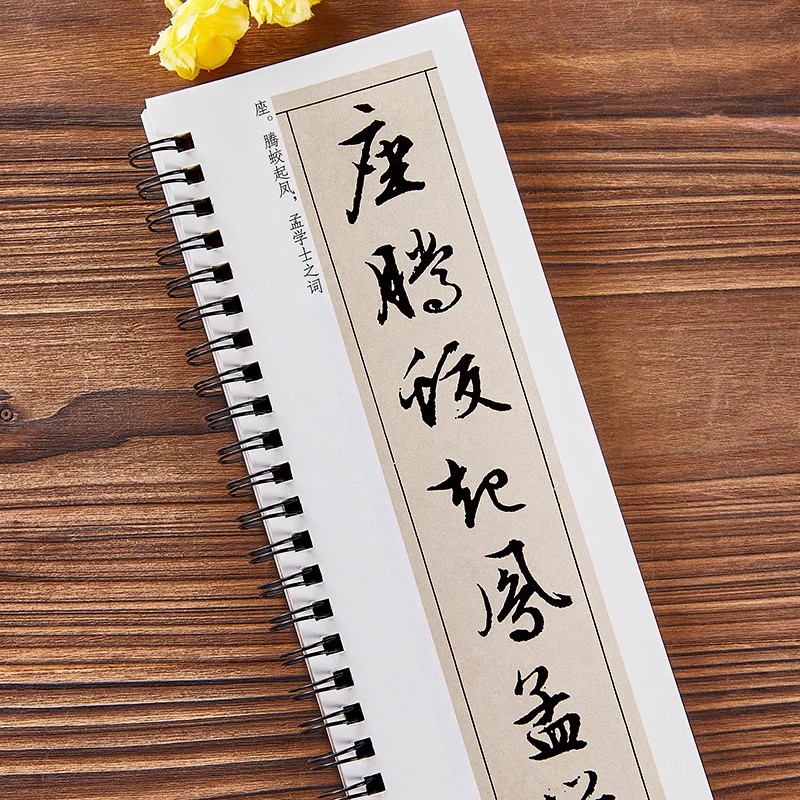 座。腾蛟起凤，孟学士之词
座騰蛟起鳳孟學